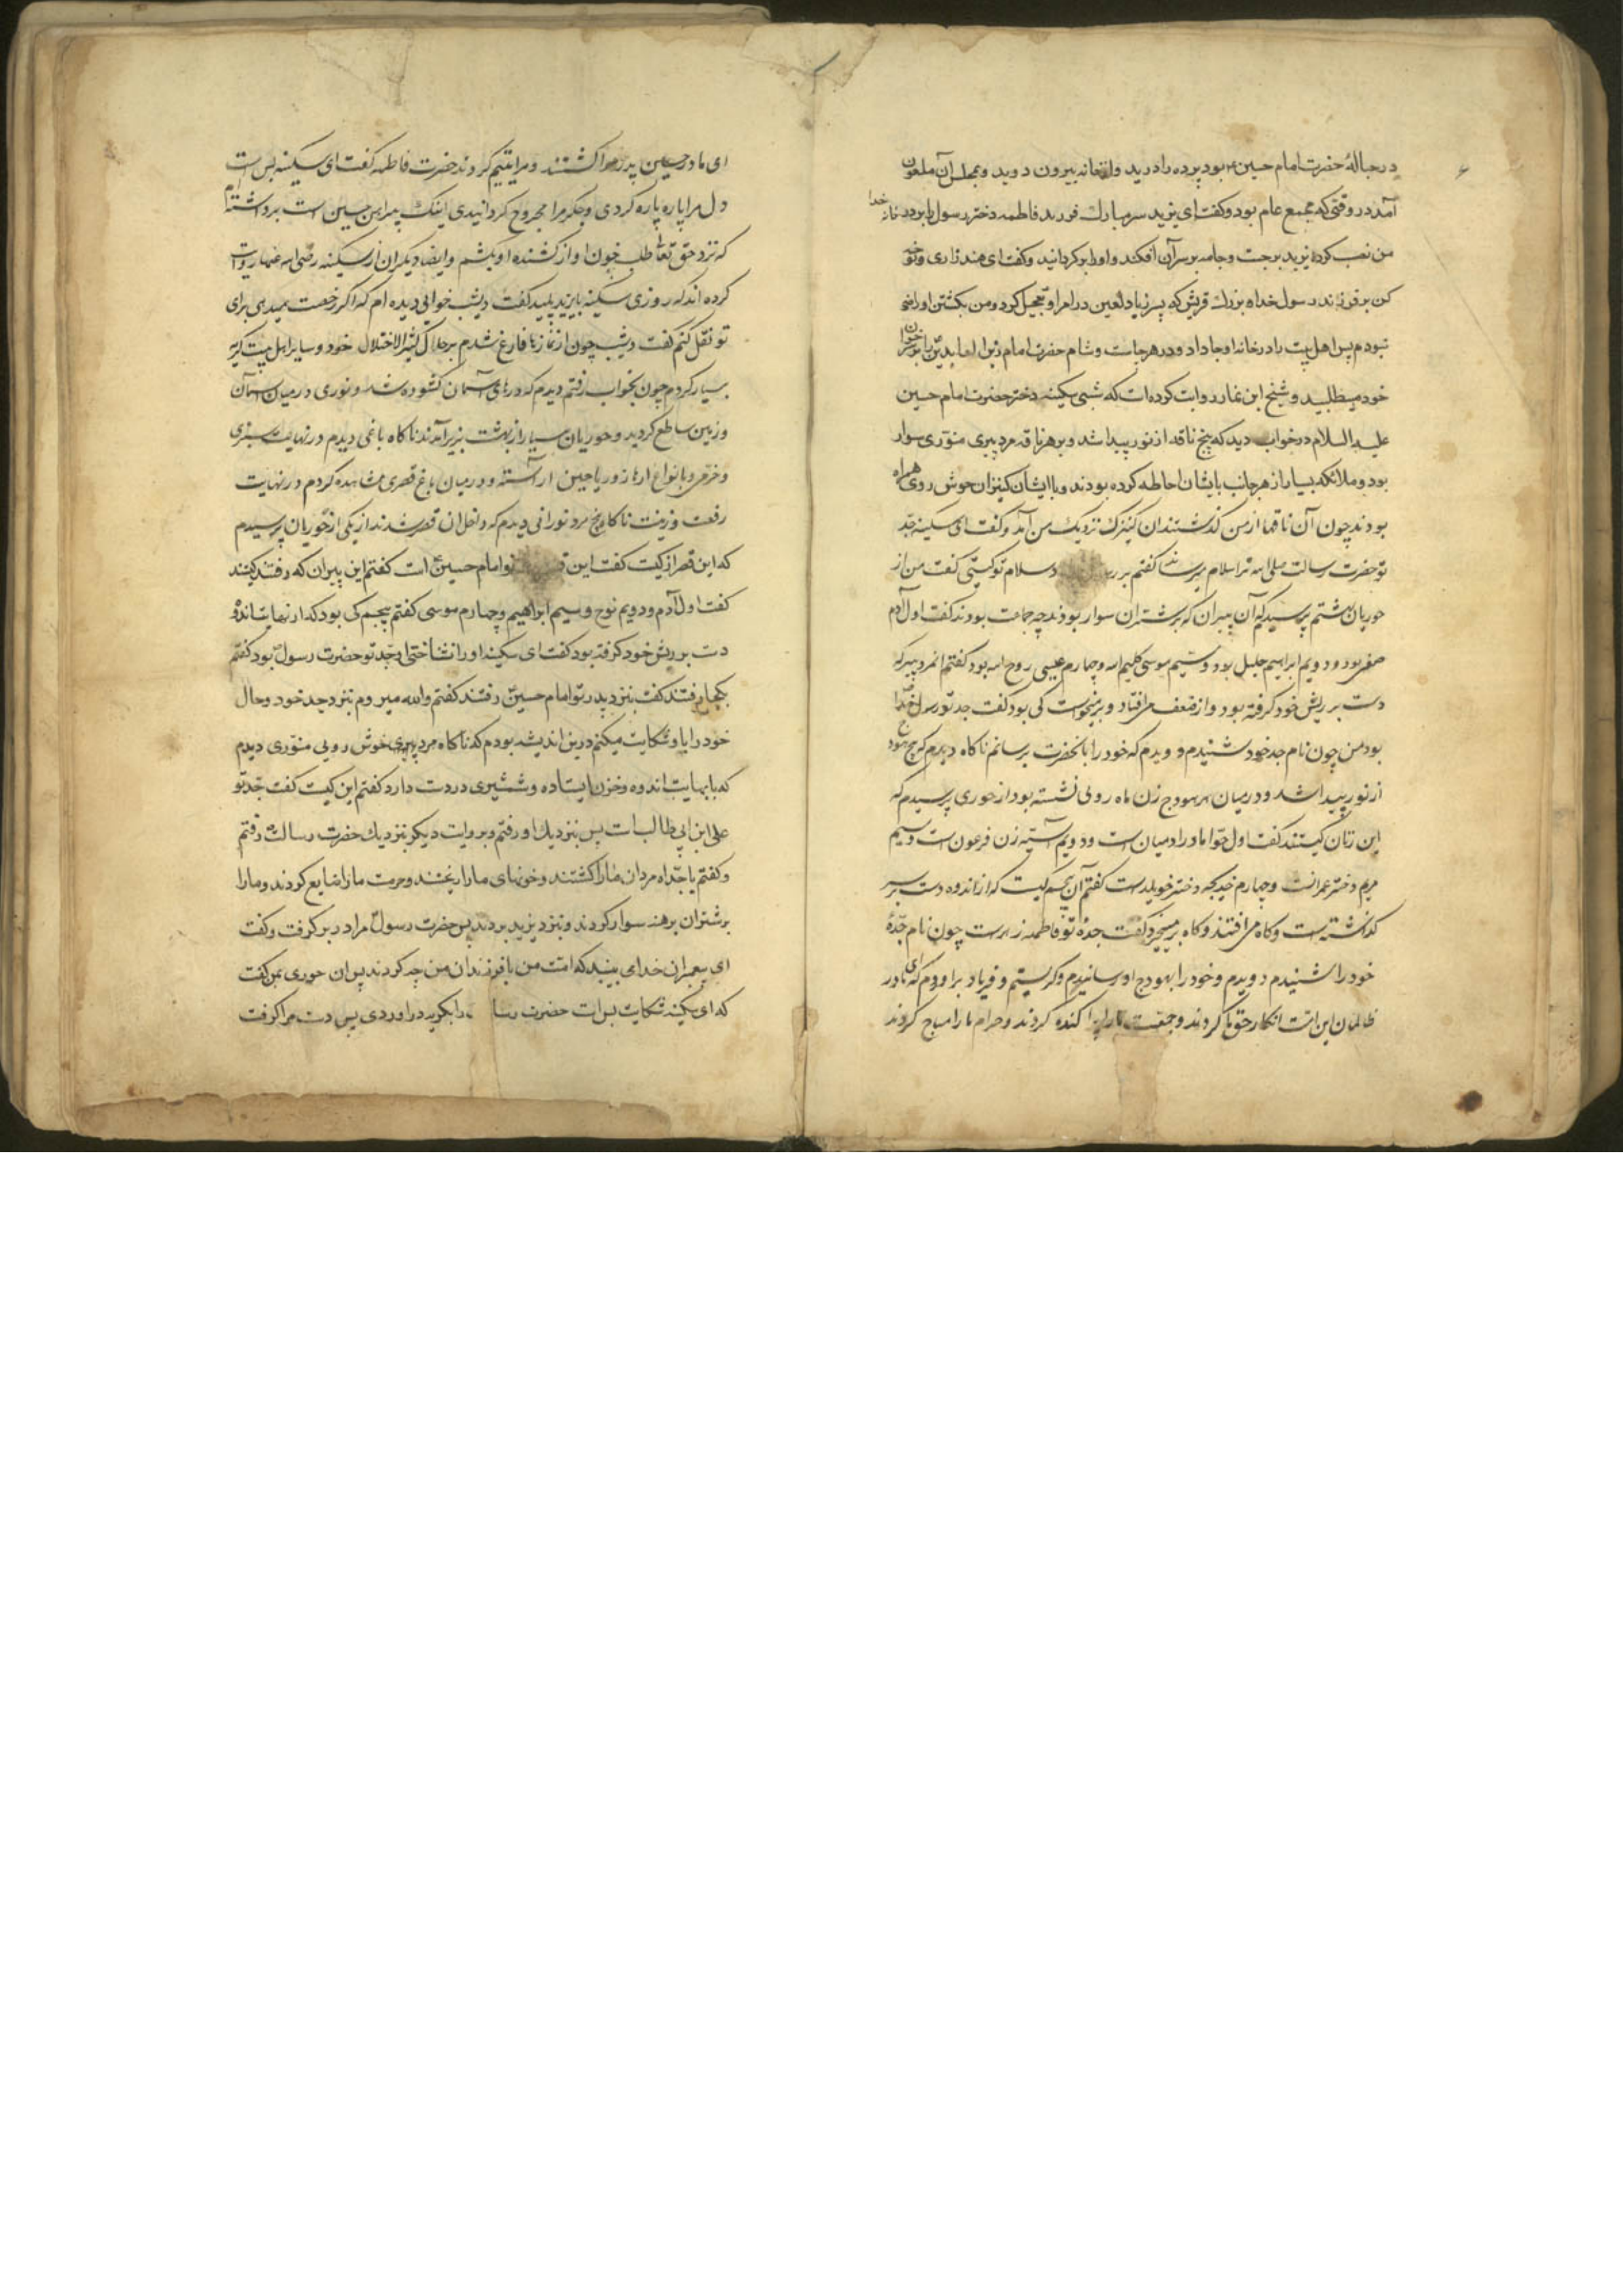 در حبالهٔ حضرت امام حسین بود پرده را درید و از خانه بیرون دوید و بمجلس آن ملعون
آمد در وقتی که مجمع عام بود و گفت ای یزید سر مبارک فرزند فاطمه دختر رسول را بر در خانهٔ
من نصب کردهٔ یزید برجست و جامه بر سر آن افکند و او را برگردانید و گفت ای هند زاری و نوحه
کن بر فرزند رسول خدا و بزرک قریش که پسر زیاد لعین در امر او تعجیل کرد و من بکشتن او راضی
نبودم پس اهل بیت را در خانه او جا داد و در هر چاشت و شام حضرت امام زین العابدین را بر خوان
خود میطلبید و شیخ ابن نما روایت کرده است که شبی سکینه دختر حضرت امام حسین
علیه السلام در خواب دید که پنج ناقه از نور پیدا شد و بر هر ناقه مرد پیری منوّری سوار
بود و ملائکه بسیار از هر جانب بایشان احاطه کرده بودند و با ایشان کنیزان خوش روی همراه
بودند چون آن ناقها از من گذشتند آن کنیزک نزدیک من آمد و گفت ای سکینه جدّ
تو حضرت رسالت صلی الله ترا سلام میرساند گفتم بر رسول و سلام تو کیستی گفت من از
حوریان بهشتم پرسیدم که آن پیران که بر شتران سوار بودند چه جماعت بودند گفت اول آدم
صفی بود و دویم ابراهیم خلیل بود و سیم موسی کلیم الله و چهارم عیسی روح الله بود گفتم آن مرد پیر که
دست بر ریش خود گرفته بود و از ضعف می افتاد و برمیخواست کی بود گفت جد تو رسول خدا
بود من چون نام جد خود شنیدم دویدم که خود را بآنحضرت برسانم ناگاه دیدم که پنج هودج
از نور پیدا شد و در میان هر هودج زن ماه رویی نشسته بود از حوری پرسیدم که
این زنان کیستند گفت اول حوّا مادر آدمیان است و دویم آسیه زن فرعون است و سیم
مریم دختر عمرانست و چهارم خدیجه دختر خویلدست گفتم آن پنجم کیست که از اندوه دست بر سر
گذاشته است و گاه می افتد و گاه برمیخیزد گفت جدهٔ تو فاطمه زهراست چون نام جدّهٔ
خود را شنیدم دویدم و خود را بهودج او رسانیدم و گریستم و فریاد براوردم که ای مادر
ظالمان این امّت انکار حق ما کردند و جمعیت ما را پراکنده کردند و حرام ما را مباح کردند
ای مادر حسین پدر مرا کشتند و مرا یتیم کردند حضرت فاطمه گفت ای سکینه بس است
دل مرا پاره پاره کردی و جگر مرا مجروح گردانیدی اینک پیراهن حسین است برداشته ام
که نزد حق تعالی طلب خون او از کشنده او بکشم و ایضا دیگران از سکینه رضی الله عنها روایت
کرده اند که روزی سکینه بایزید پلید گفت دیشب خوابی دیده ام که اگر رخصت میدهی برای
تو نقل کنم گفت دیشب چون از نمازها فارغ شدم بر حال کثیر الاختلال خود و سایر اهل بیت گریه
بسیار کردم چون بخواب رفتم دیدم که درهای آسمان گشوده شد و نوری در میان آسمان
و زمین ساطع گردید و حوریان بسیار از بهشت بزیر آمدند ناگاه باغی دیدم در نهایت سبزی
و خرّمی و بانواع ازهار و ریاحین آراسته و در میان باغ قصری مشاهده کردم در نهایت
رفعت و زینت ناگاه پنج مرد نورانی دیدم که داخل آن قصر شدند از یکی از حوریان پرسیدم
که این قصر از کیست گفت این تو امام حسین است گفتم این پیران که رفتند کیستند
گفت اول آدم و دویم نوح و سیم ابراهیم و چهارم موسی گفتم پنجم کی بود که از نهایت اندوه
دست بر ریش خود گرفته بود گفت ای سکینه او را نشناختی او جد تو حضرت رسول بود گفتم
بکجا رفتند گفت بنزد پدر تو امام حسین رفتند گفتم والله میروم بنزد جد خود و حال
خود را باو شکایت میکنم درین اندیشه بودم که ناگاه مرد پیری خوش رویی منوّری دیدم
که با نهایت اندوه و حزن ایستاده و شمشیری در دست دارد گفتم این کیست گفت جدّ تو
علی ابن ابی طالب است پس بنزدیک او رفتم و بروایت دیگر بنزدیک حضرت رسالت رفتم
و گفتم یا جدّاه مردان ما را کشتند و خونهای ما را ریختند و حرمت ما را ضایع کردند و ما را
بر شتران برهنه سوار کردند و بنزد یزید بردند پس حضرت رسول مرا در بر گرفت و گفت
ای پیغمبران خدا می بینید که امّت من با فرزندان من چه کردند پس آن حوری بمن گفت
که ای سکینه شکایت بس است حضرت رسا را بگریه دراوردی پس دست مرا گرفت